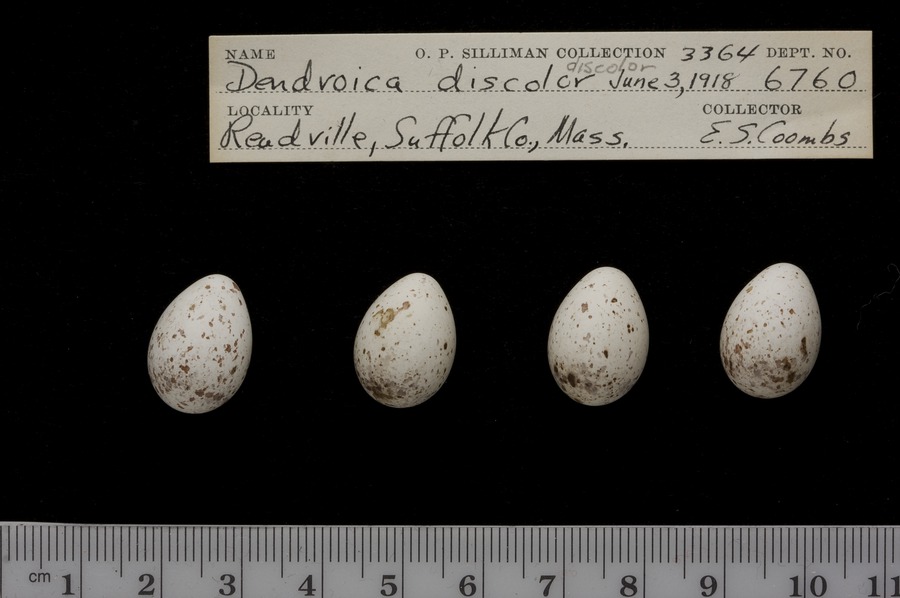 NAME O. P. SILLIMAN COLLECTION 3364 DEPT. NO.
discolor
Dendroica discolor June 3, 1918 6760
LOCALITY COLLECTOR
Readville, Suffolk Co., Mass. E. S. Coombs
cm 1 2 3 4 5 6 7 8 9 10 11